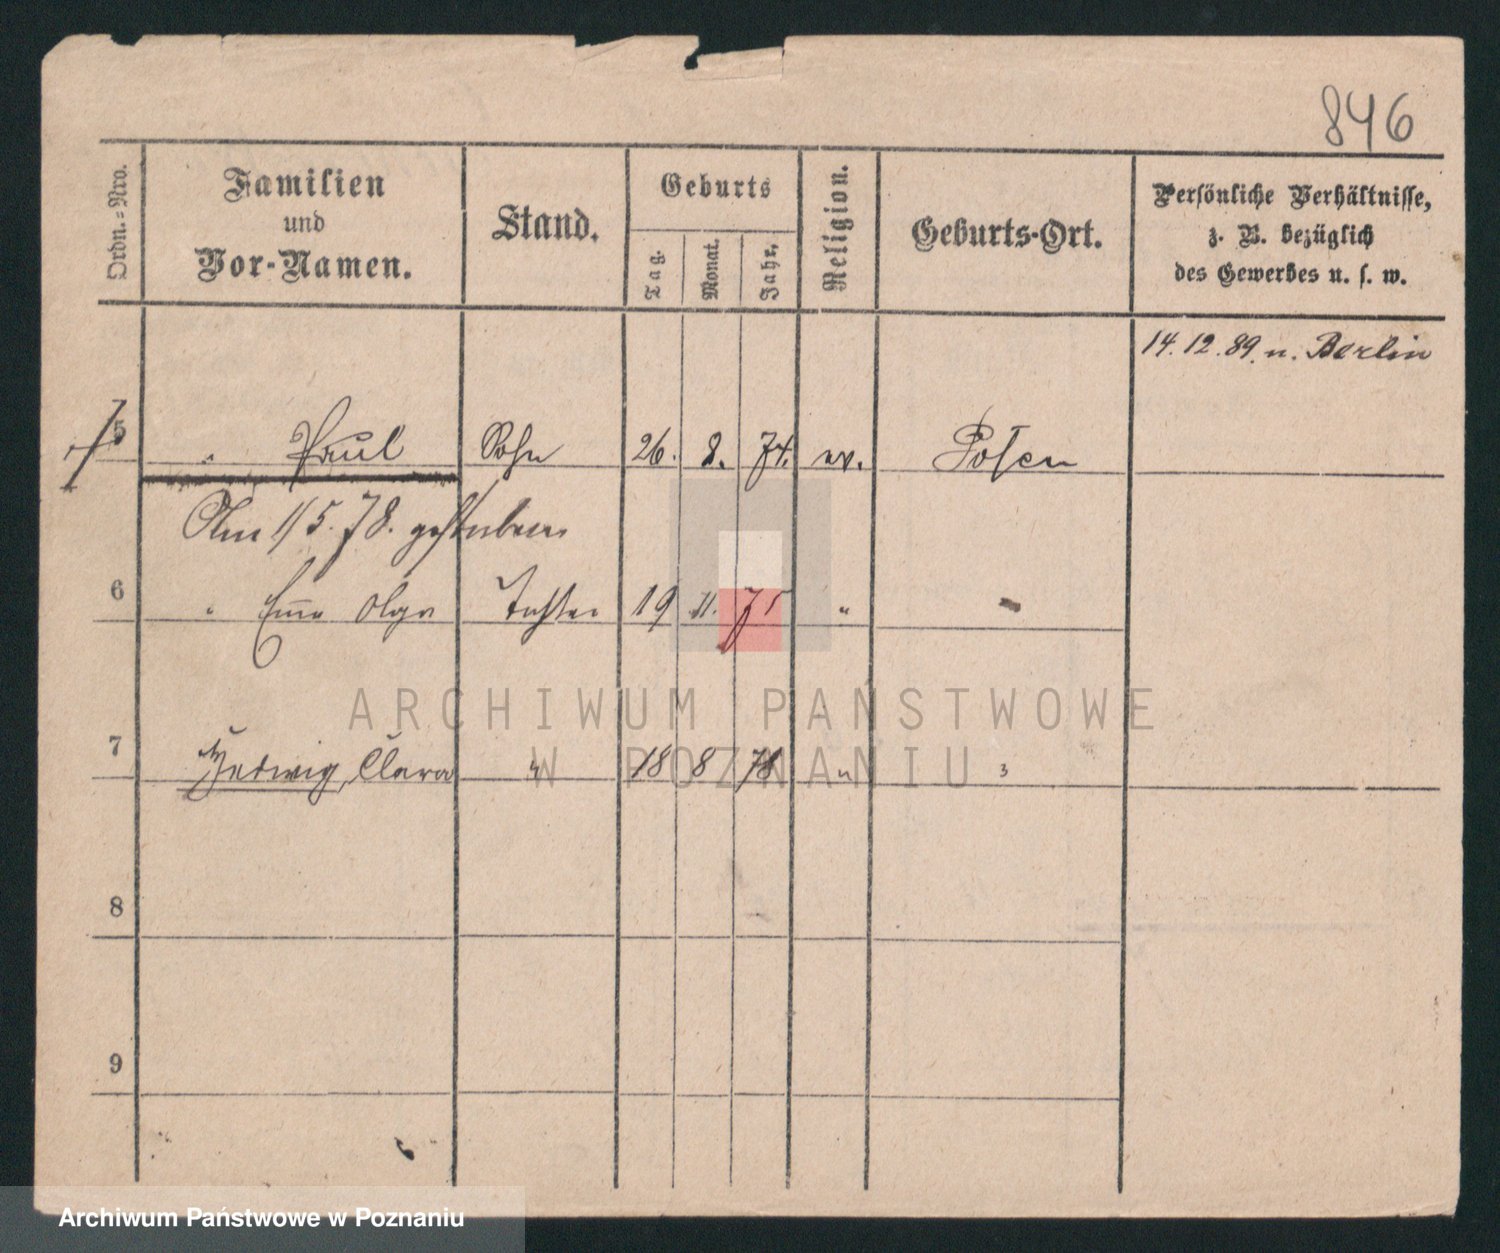 846
Ordn.-Nro.
Familien
und
Vor-Namen.
Stand.
Geburts
Tag.
Monat.
Jahr.
Religion.
Geburts-Ort.
Persönliche Verhältnisse,
z. B. bezüglich
des Gewerbes u. s. w.
14.12.89. n. Berlin
5 " Paul Sohn 26. 8. 74. ev. Posen
Am 1/5. 78. gestorben
6 " Olga Tochter 19 11. 75 " "
7 Hedwig, Clara " 18 8 78 " "
8
9
ARCHIWUM PAŃSTWOWE
W POZNANIU
Archiwum Państwowe w Poznaniu